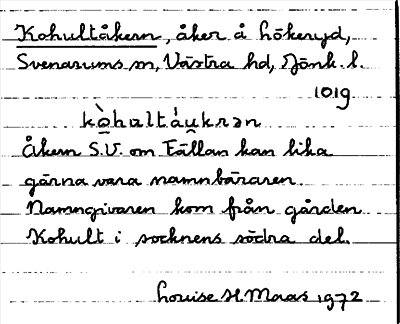 Kohultåkern, åker å Hökeryd,
Svenarums sn, Västra hd, Jönk. l.
1019
kòhultáu̯krən
Åkern S.V. om Fällan kan lika
gärna vara namnbäraren.
Namngivaren kom från gården
Kohult i socknens södra del.
Louise H Maas 1972